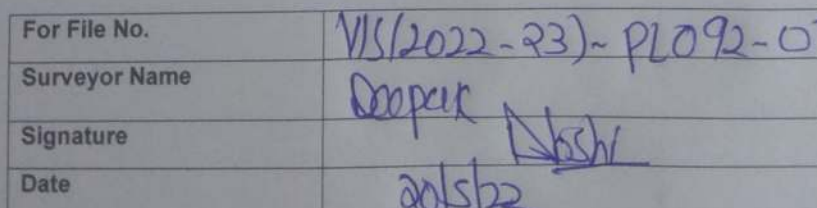 For File No. VIS(2022-23)-PL092-0
Surveyor Name Deepak
Signature Joshi
Date 20/5/22